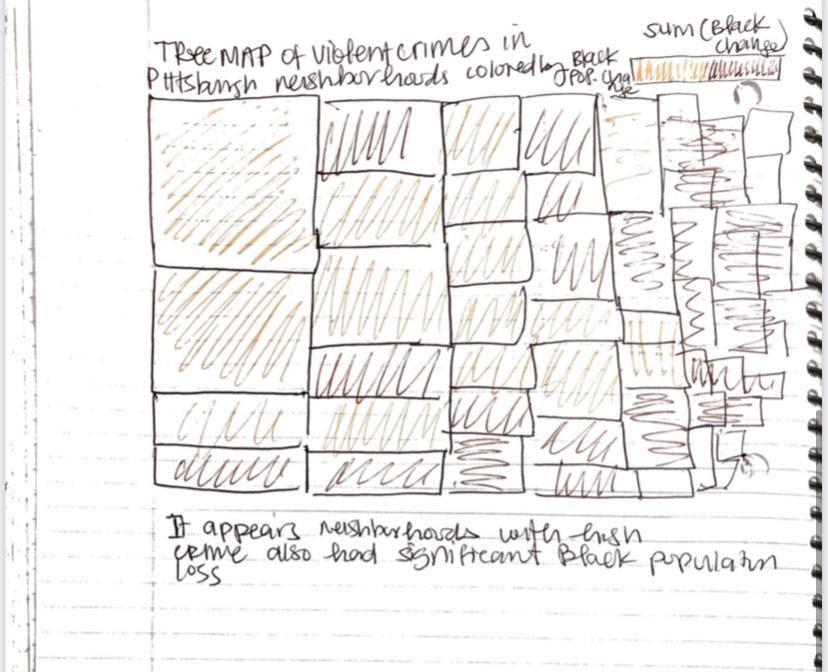 TRee MAP of violent crimes in
Pittsburgh neighborhoods colored by Black
pop. change
sum (Black
change)
It appears neighborhoods with high
crime also had significant Black population
loss